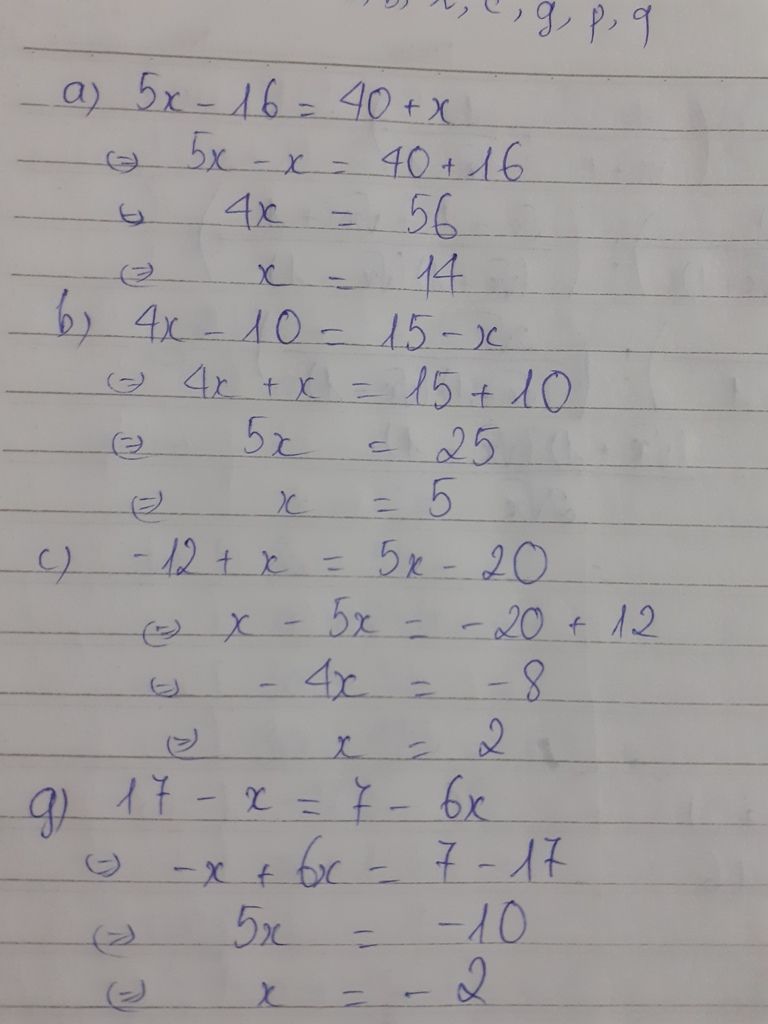 , c, g, p, q
a) 5x - 16 = 40 + x
⇔ 5x - x = 40 + 16
⇔ 4x = 56
⇔ x = 14
b) 4x - 10 = 15 - x
⇔ 4x + x = 15 + 10
⇔ 5x = 25
⇔ x = 5
c) -12 + x = 5x - 20
⇔ x - 5x = -20 + 12
⇔ - 4x = -8
⇔ x = 2
g) 17 - x = 7 - 6x
⇔ -x + 6x = 7 - 17
⇔ 5x = -10
⇔ x = - 2